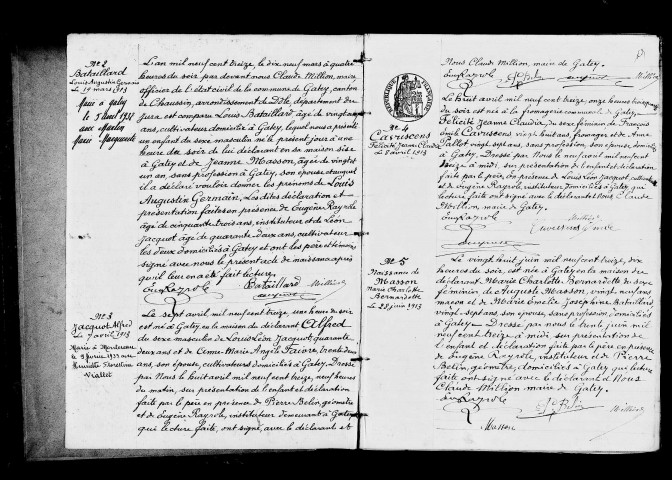 N° 2
Bataillard
Louis Augustin Germain
Le 19 mars 1913
Marié à Gatey
le 3 Avril 1938
avec
L'an mil neuf cent treize, le dix neuf mars à quatre
heures du soir par devant nous Claude Million, maire
officier de l'état civil de la commune de Gatey, canton
de Chaussin, arrondissement de Dôle, département du
Jura est comparu Louis Bataillard âgé de vingt
ans, cultivateur domicilié à Gatey, lequel nous a présenté
un enfant du sexe masculin né le présent jour à une
heure du soir de lui déclarant en sa maison sise
à Gatey et de Jeanne Masson, âgée de vingt et
un an, sans profession à Gatey, son épouse et auquel
il a déclaré vouloir donner les prénoms de Louis
Augustin Germain. Les dites déclaration et
présentation faites en présence de Eugène Rayrole
âgé de cinquante trois ans, instituteur et de Léon
Jacquot âgé de quarante deux ans, cultivateur
les deux domiciliés à Gatey et ont les père et témoins
signé avec nous le présent acte de naissance après
qu'il leur en a été fait lecture.
Eug Rayrole Bataillard Million
Jacquot
N° 3
Jacquot Alfred
Le 7 avril 1913
Marié à
le 9 février 1937 avec
Viallet
Le sept avril mil neuf cent treize, une heure du soir
est né à Gatey en la maison du déclarant Alfred
du sexe masculin de Louis Léon Jacquot, quarante
deux ans et de Marie Angèle Faivre, trente deux
ans, son épouse, cultivateurs domiciliés à Gatey. Dressé
par Nous le huit avril mil neuf cent treize, neuf heures
du matin, sur présentation de l'enfant et déclaration
faite par le père en présence de Pierre Belin, géomètre
et de Eugène Rayrole, instituteur demeurant à Gatey
qui lecture faite, ont signé, avec le déclarant et
Nous Claude Million, maire de Gatey.
Eug Rayrole P. Belin Jacquot Million
N° 4
Félicité Jeanne Claudia
Le 8 avril 1913
Le huit avril mil neuf cent treize, onze heures
du soir est née à la fromagerie communale de Gatey,
Félicité Jeanne Claudia, du sexe féminin de François
Emile vingt huit ans, fromager et de Anne
Pallot vingt sept ans, sans profession, son épouse domiciliés
à Gatey. Dressé par Nous le neuf avril mil neuf cent
treize à midi, sur présentation de l'enfant et déclaration
faite par le père, en présence de Louis Léon Jacquot, cultivateur
et de Eugène Rayrole, instituteur domiciliés à Gatey, qui
lecture faite ont signé avec le déclarant et Nous Claude
Million, maire de Gatey.
Eug Rayrole Million
Jacquot
N° 5
Naissance de
Masson
Marie Charlotte
Bernardette
Le 28 juin 1913
Le vingt huit juin mil neuf cent treize, dix
heures du soir, est née à Gatey en la maison du
déclarant Marie Charlotte Bernardette du sexe
féminin de Auguste Masson, vingt neuf ans
maçon et de Marie Emélie Joséphine Bataillard,
vingt-sept ans, son épouse, sans profession domiciliés
à Gatey. Dressé par nous le trente juin mil
neuf cent treize, à midi sur présentation de
l'enfant et déclaration faite par le père, en présence
de Eugène Rayrole, instituteur et de Pierre
Belin, géomètre, domiciliés à Gatey qui lecture
faite ont signé avec le déclarant et Nous
Claude Million maire de Gatey.
Eug Rayrole P. Belin Million
Masson